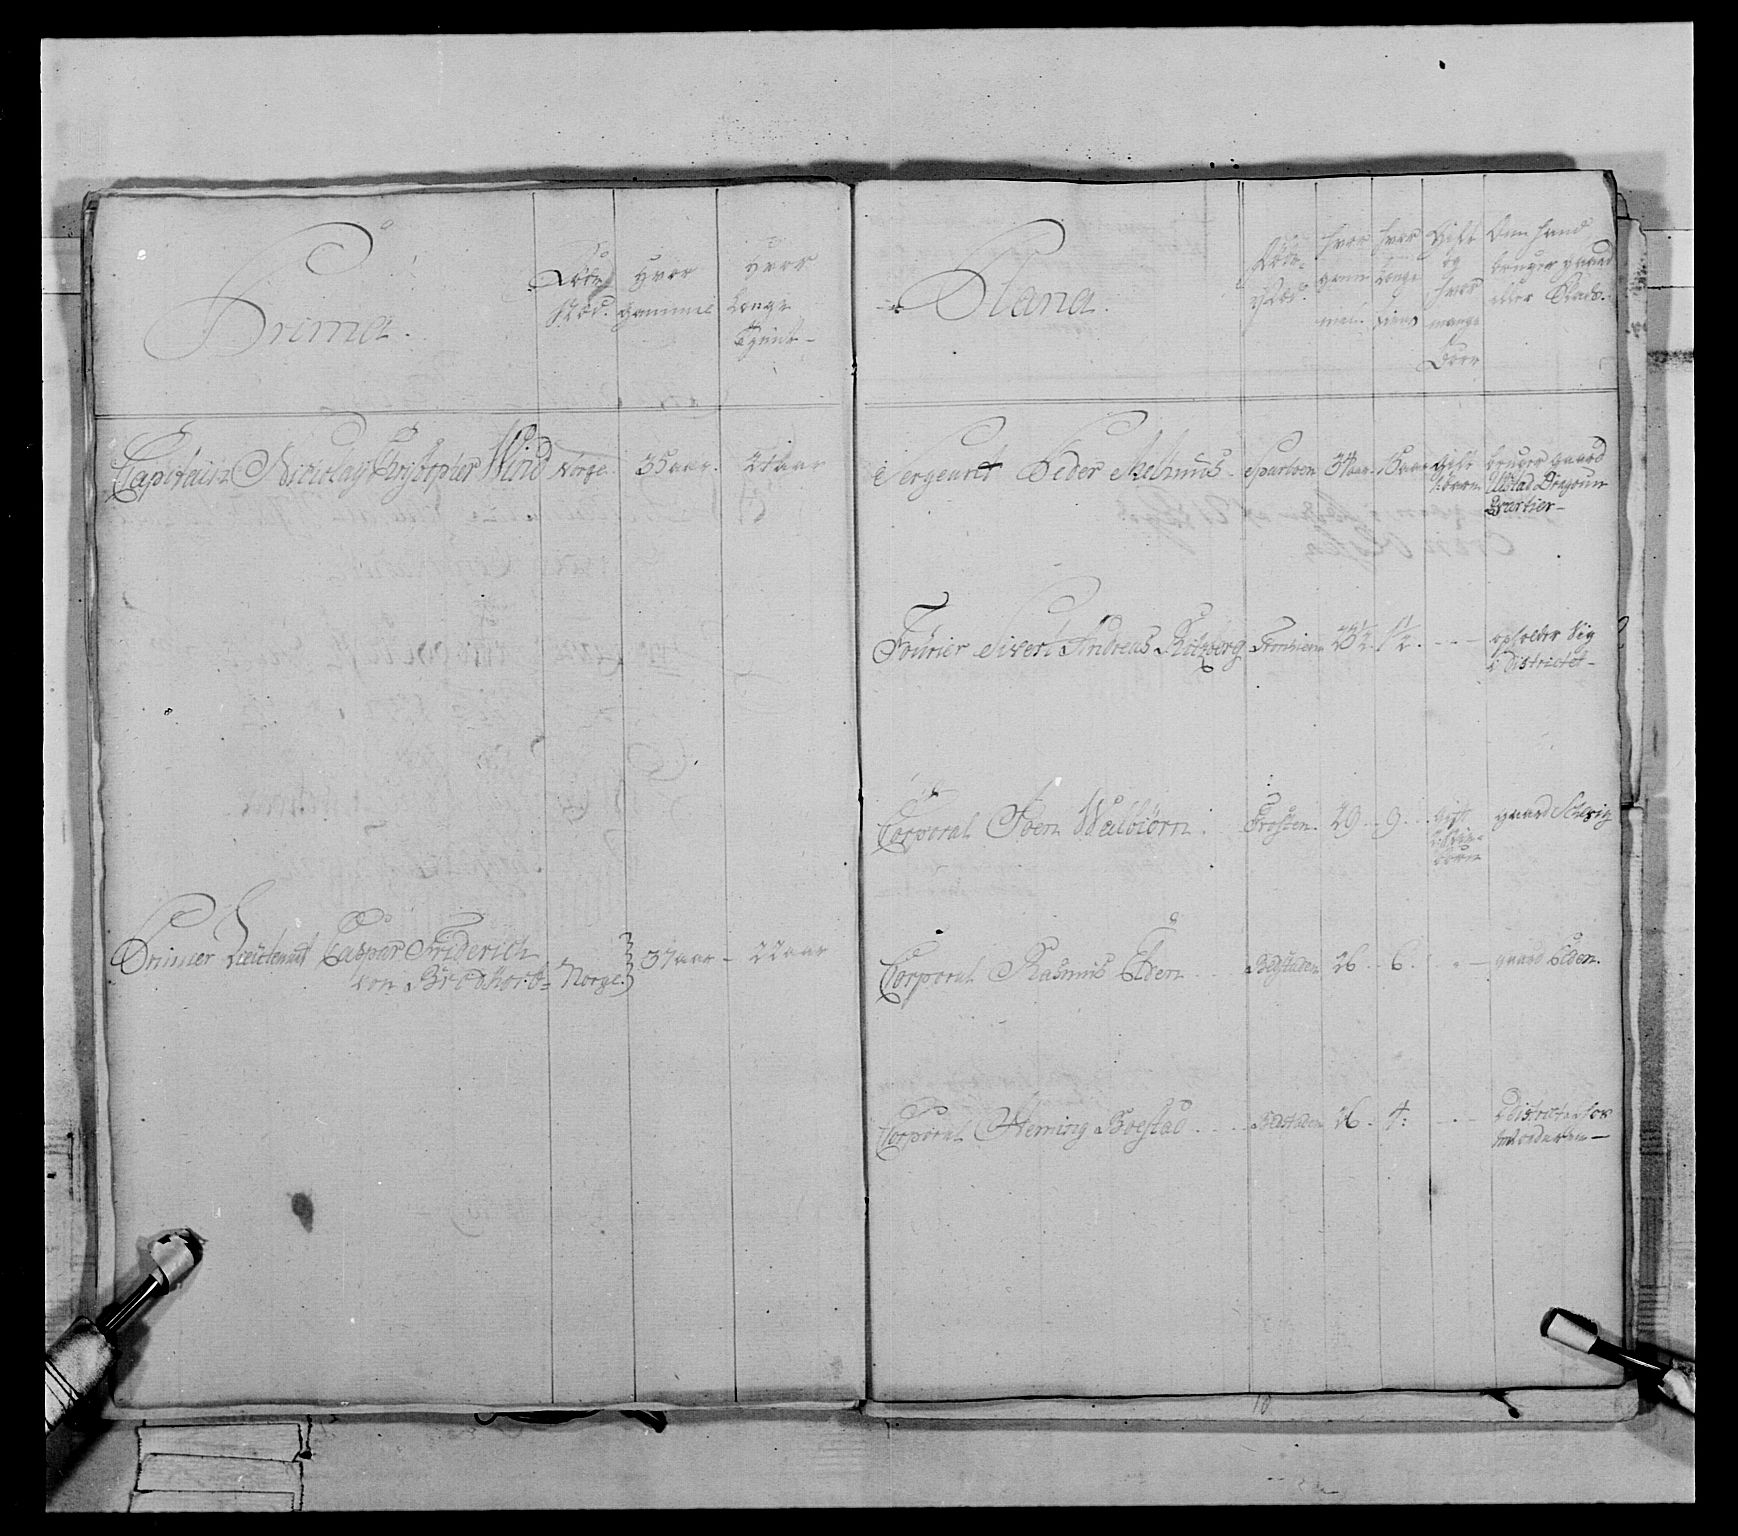 Prima.
Føde
Stæd.
Hvor
Gammel
Hvor
Længe
Tjent
Capitain Nicolay Christopher Wind Norge. 35 aar. 21 aar
Primier Lieutenant Caspar Friderich
von Norge. 37 aar 22 aar
Plana.
Føde
Stæd.
hvor
gam
mel
hvor
længe
tient
Gift
og
hvor
mange
Børn
Om hand
bruger gaard
eller Plads.
Sergeant Peder Rasmus Sparboen 34 aar Gift bruger gaard
Dragoun
Qvarteer
Fourier Sivert Andreas 23½ 1½ opholder Sig
i Districtet
Corporal Joen Weibiørn Frosten 29 9 Gift gaard
børn
Corporal Rasmus Elden Bedstaden 26 6 gaard Elden.
Corporal Heming Boestad Bedstaden 26 4 i Districtet hos
18